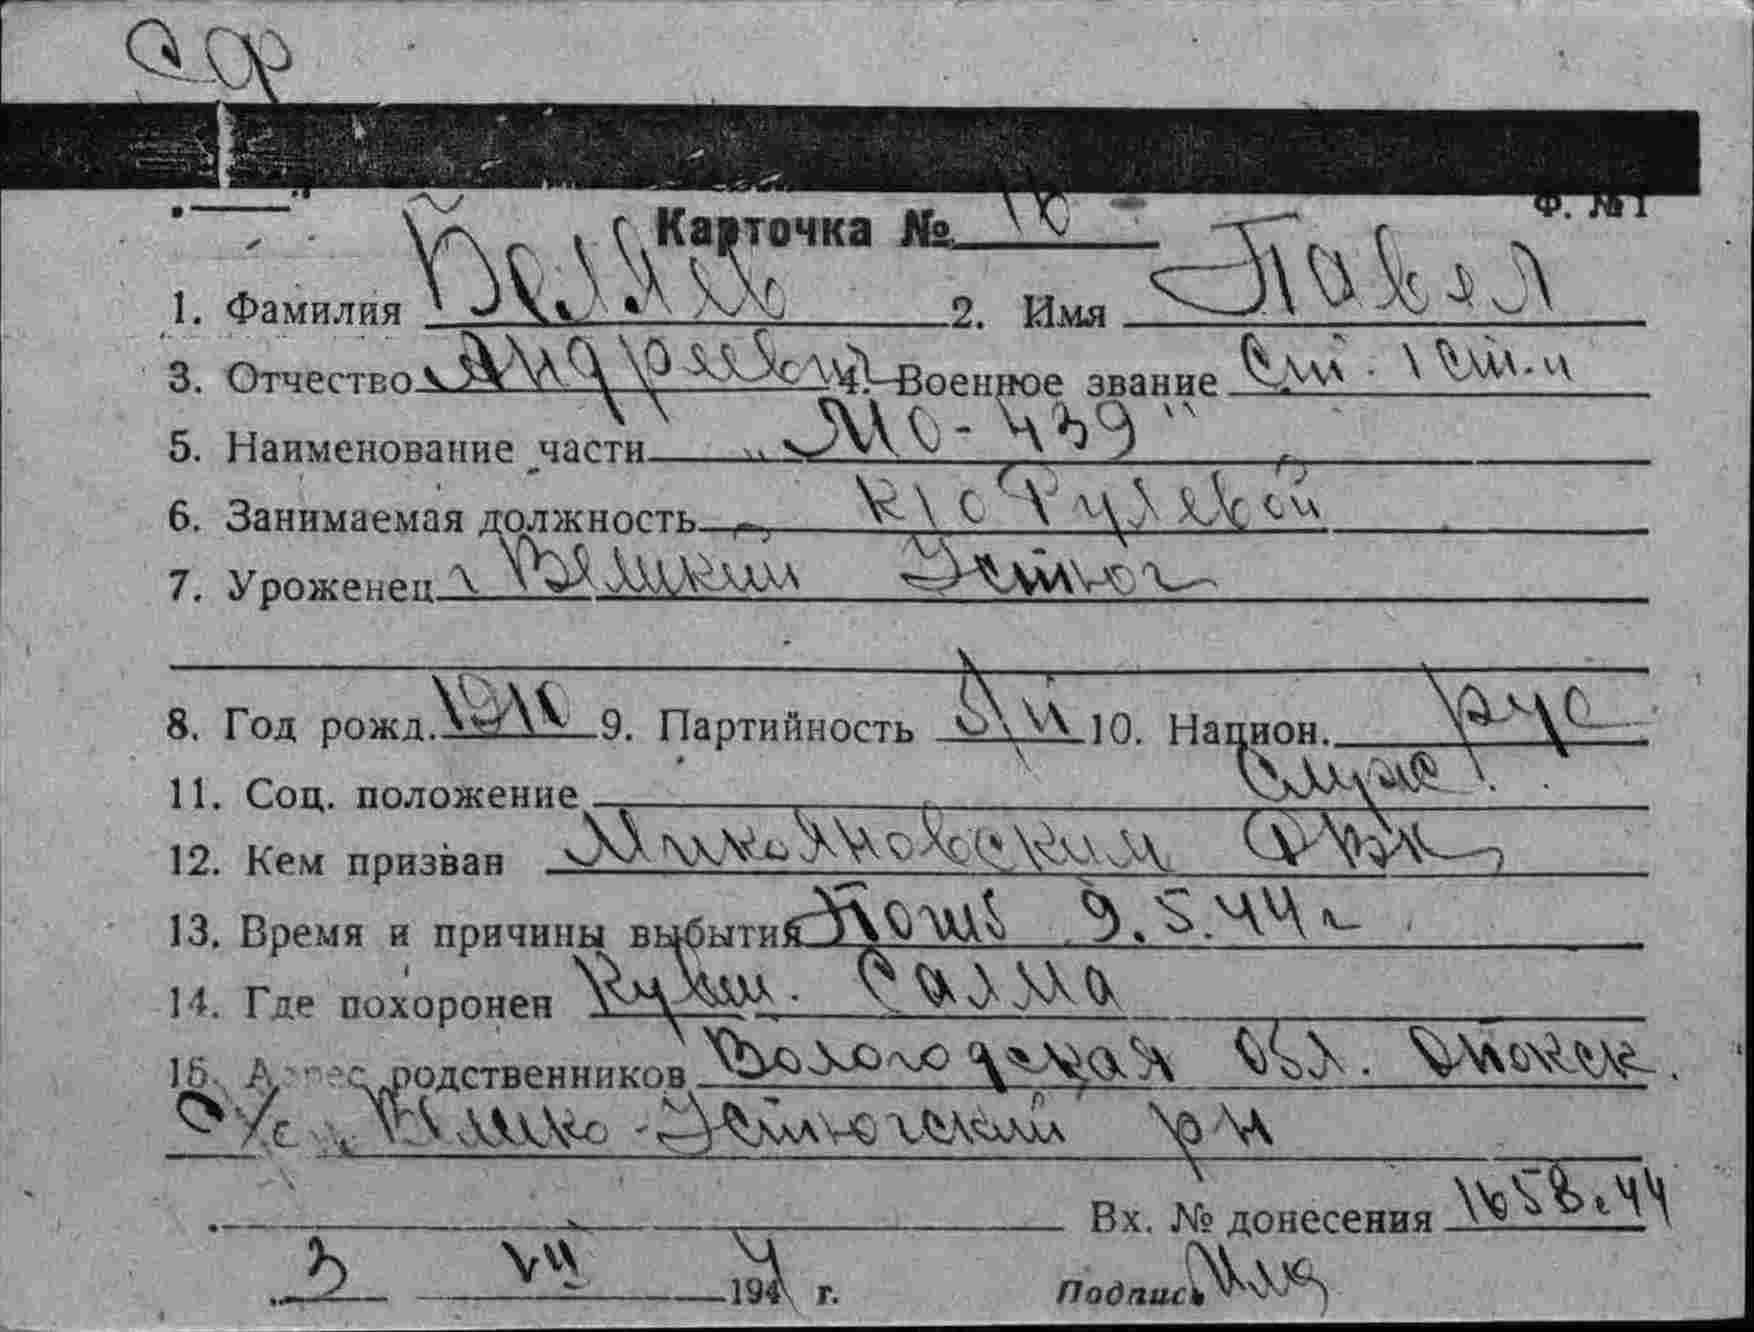 Ф. №1
Карточка № 16
1. Фамилия Беляев 2. Имя Павел
3. Отчество Андреевич 4. Военное звание Ст. 1 ст.
5. Наименование части „МО-439"
6. Занимаемая должность к/о Рулевой
7. Уроженец г Великий Устюг
8. Год рожд. 9. Партийность 10. Национ. рус
11. Соц. положение Служ.
12. Кем призван Микояновским РВК
13. Время и причины выбытия Погиб 9.5.44 г
14. Где похоронен Кувшин. Салма
15. Адрес родственников Вологодская обл.
с/с, Велико-Устюгский р-н
Вх. № донесения 1658.44
3 VII 1944 г. Подпись